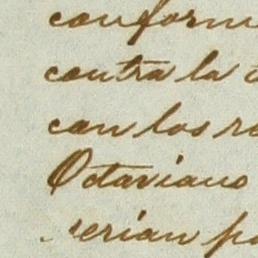 conform
contra la
con los re
Octaviano
serian po